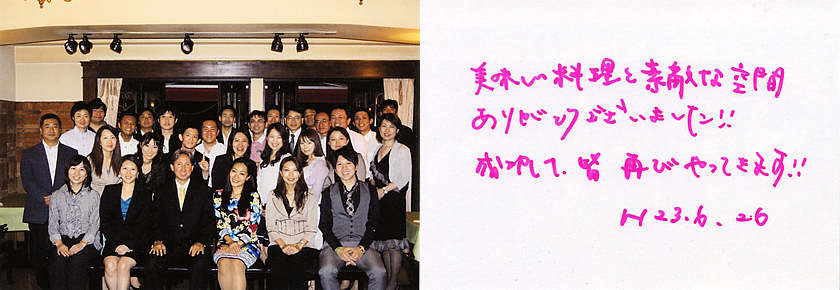 美味しい料理と素敵な空間
ありがとうございました!!
成功して、皆 再び やってきます!!
H23.6.26